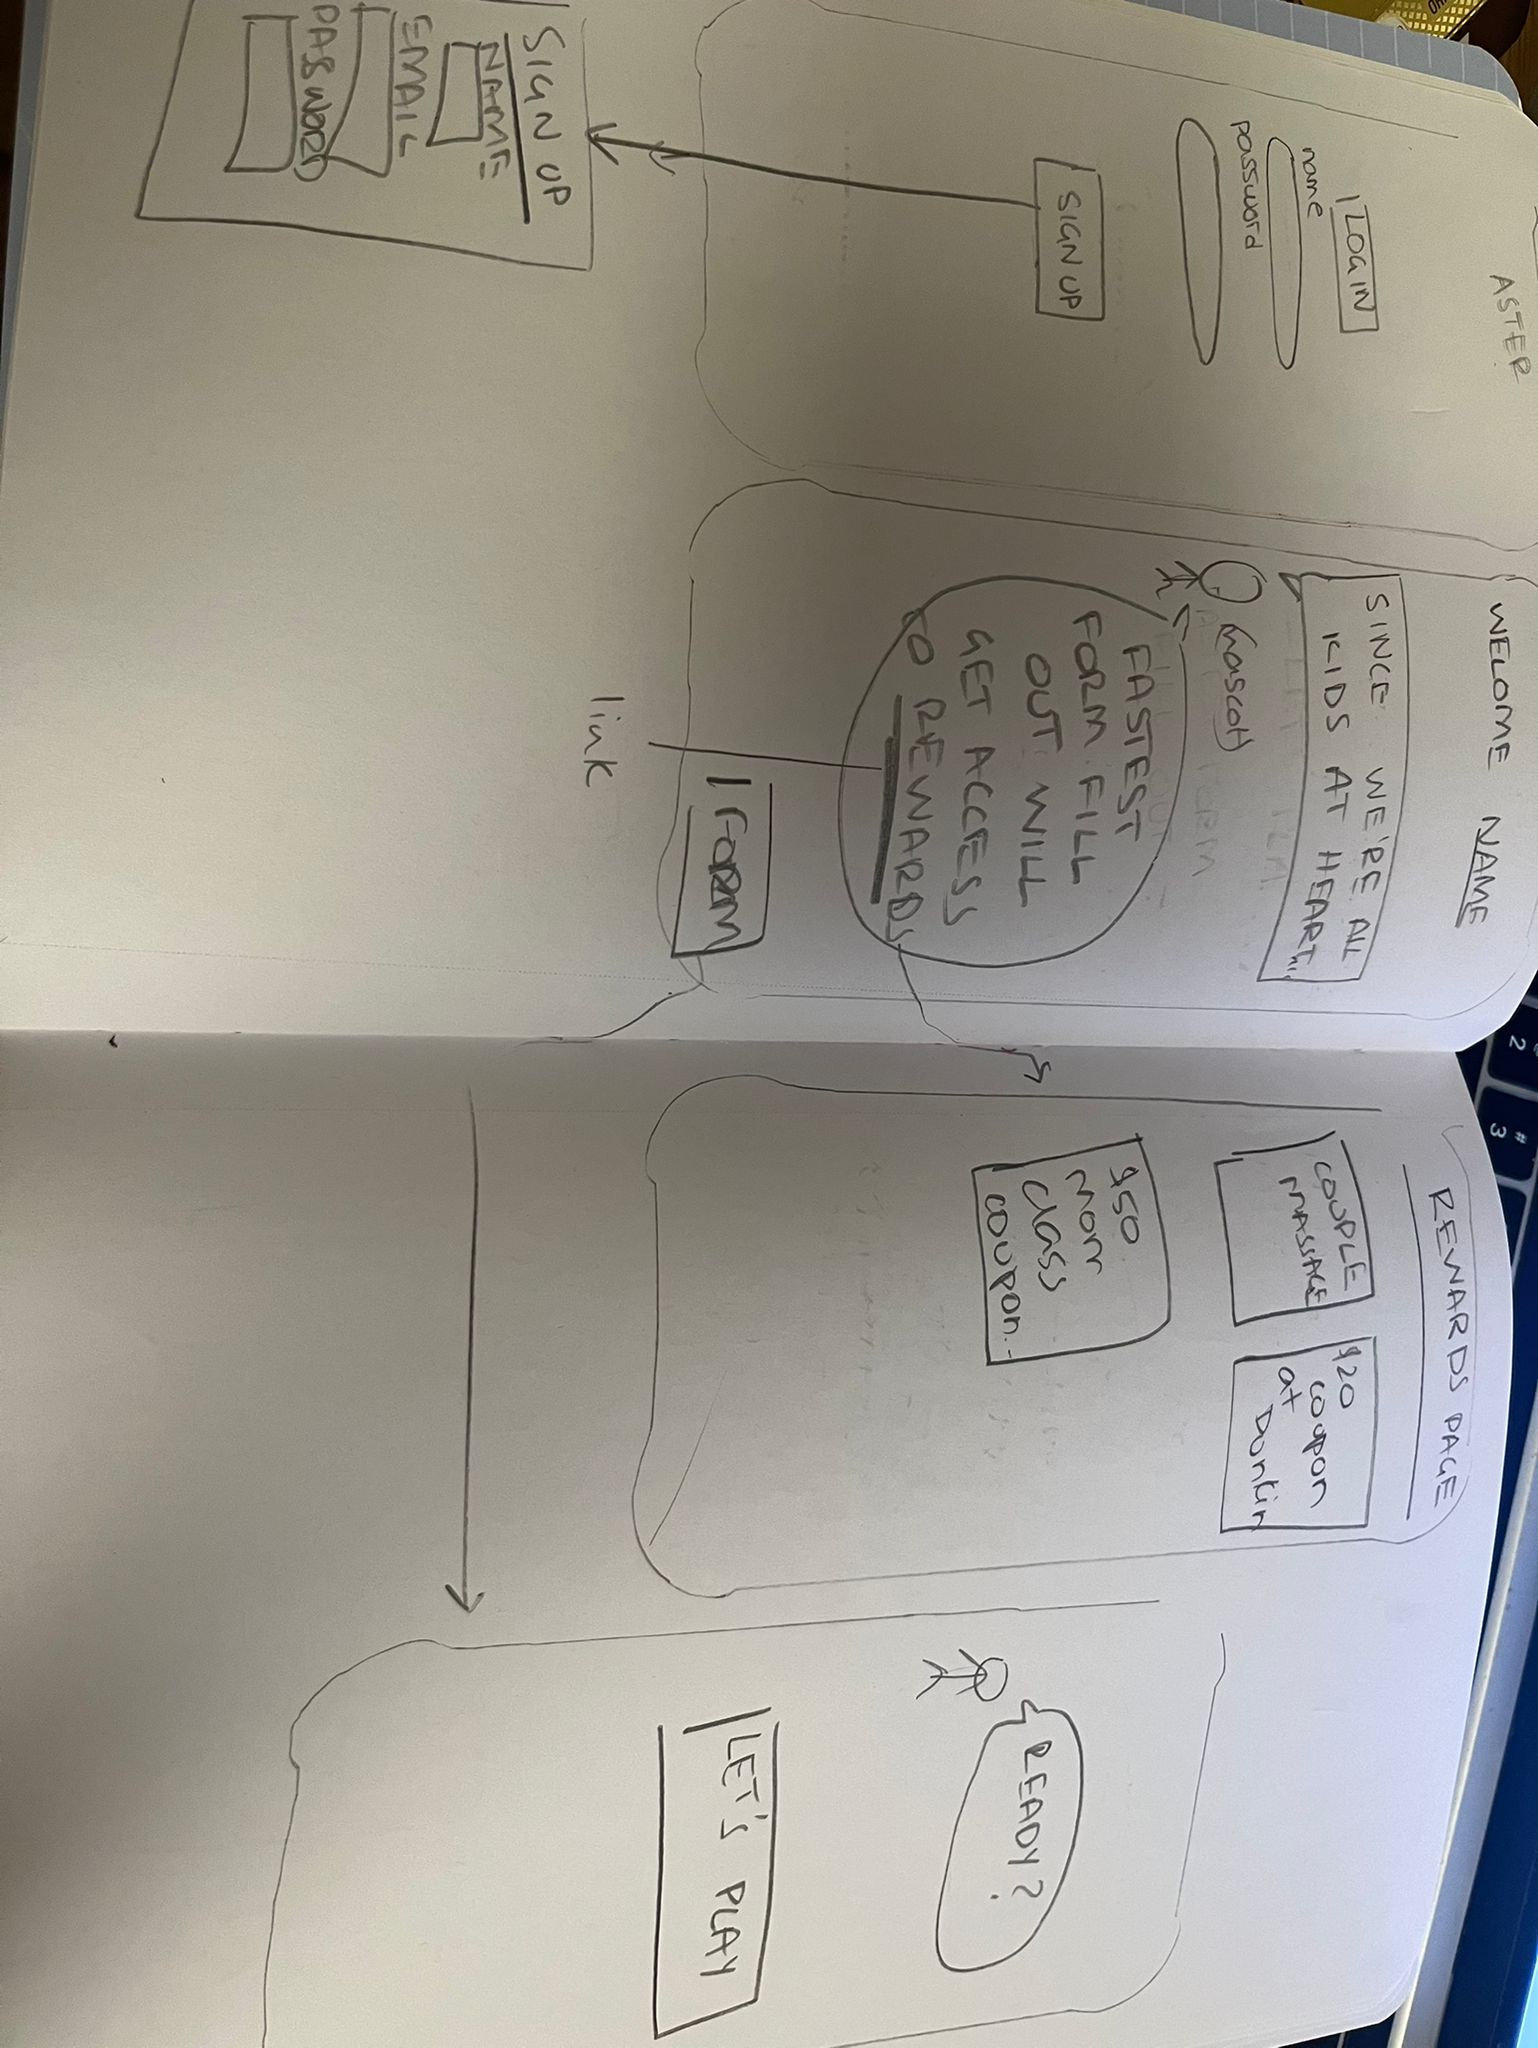 ASTER
LOGIN
name
password
SIGN UP
SIGN UP
NAME
EMAIL
PASSWORD
WELOME NAME
SINCE WE'RE ALL
KIDS AT HEART...
(mascot)
FASTEST
FORM FILL
OUT WILL
GET ACCESS
TO REWARDS
FORM
link
REWARDS PAGE
COUPLE
MASSAGE
$20
coupon
at
Dunkin
$50
mom
class
coupon..
READY?
LET'S PLAY
2
#
3